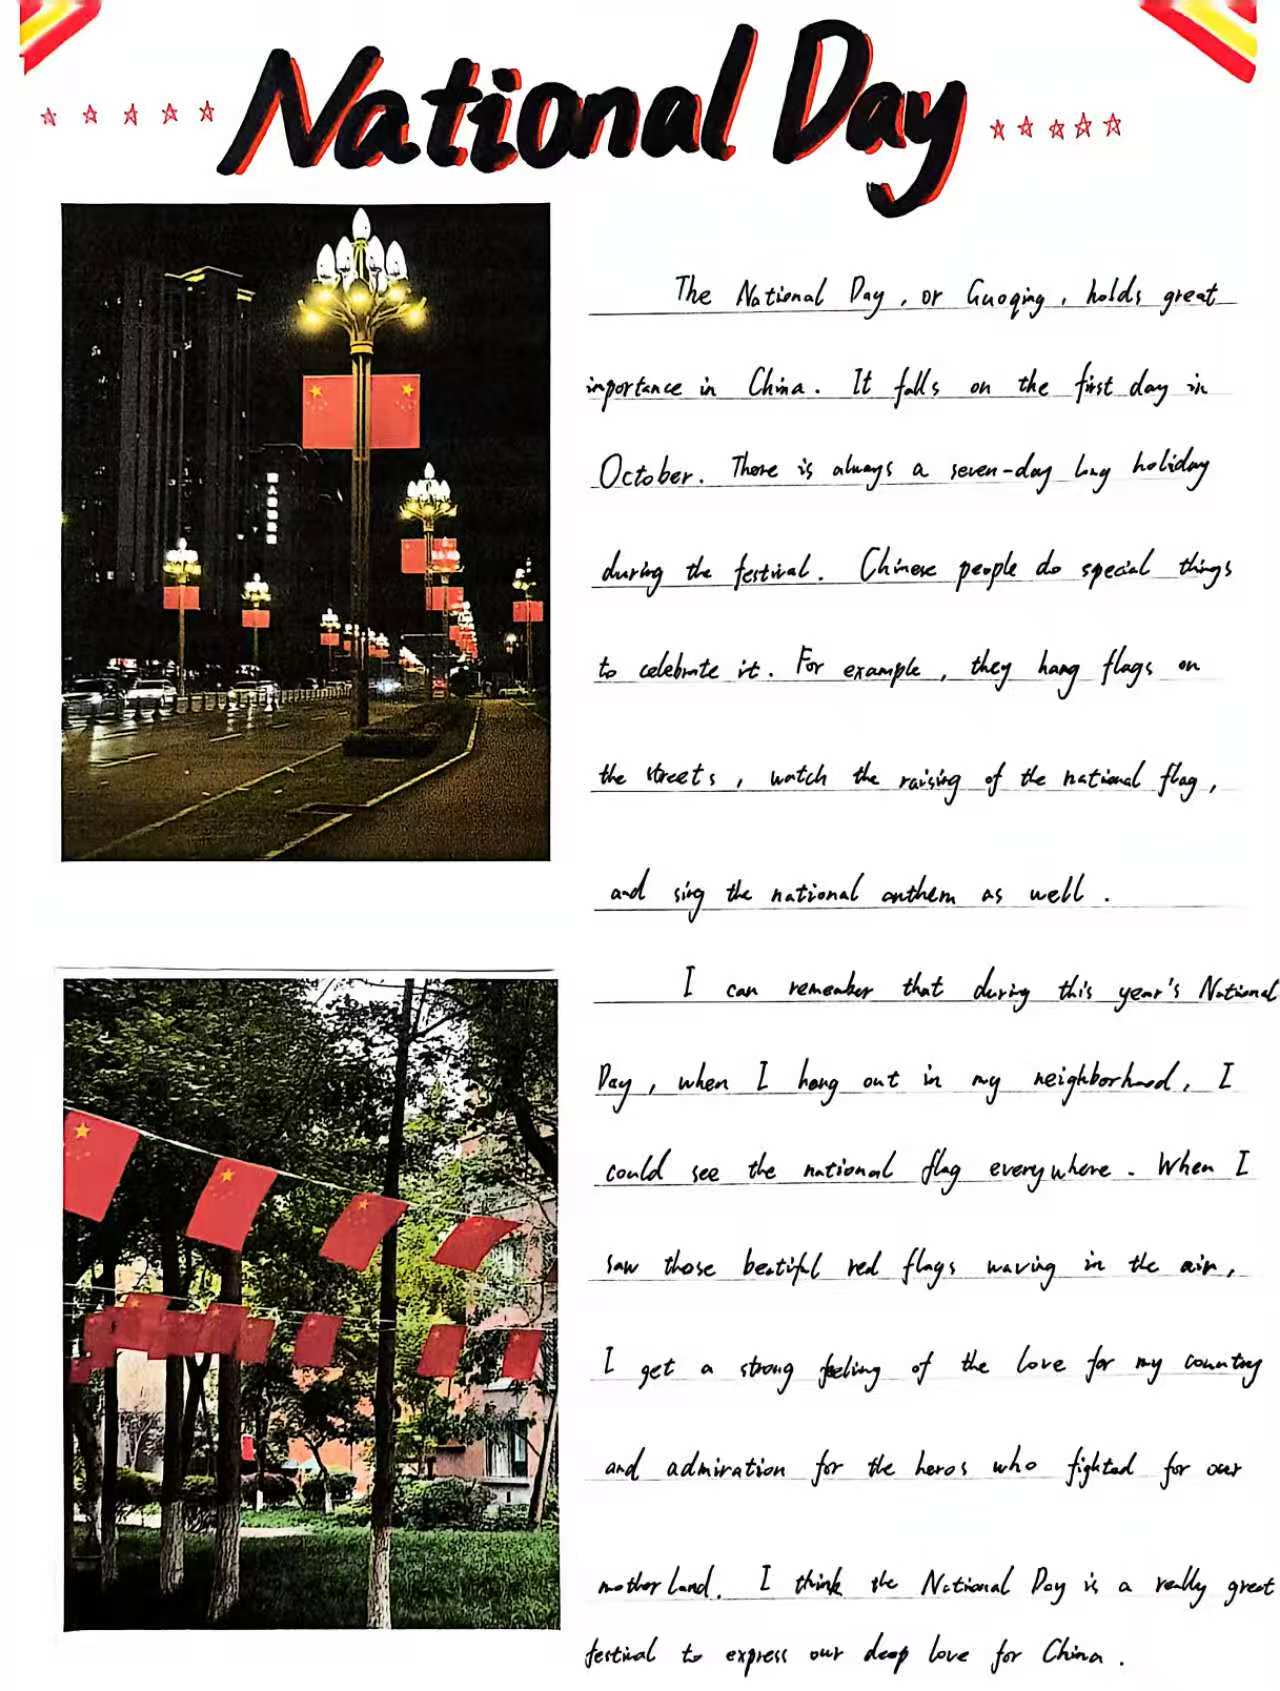 National Day
The National Day, or Guoqing, holds great
importance in China. It falls on the first day in
October. There is always a seven-day long holiday
during the festival. Chinese people do special things
to celebrate it. For example, they hang flags on
the streets, watch the raising of the national flag,
and sing the national anthem as well.
I can remember that during this year's National
Day, when I hang out in my neighborhood, I
could see the national flag everywhere. When I
saw those beatiful red flags waving in the air,
I get a strong feeling of the love for my country
and admiration for the heros who fighted for our
motherland. I think the National Day is a really great
festival to express our deep love for China.